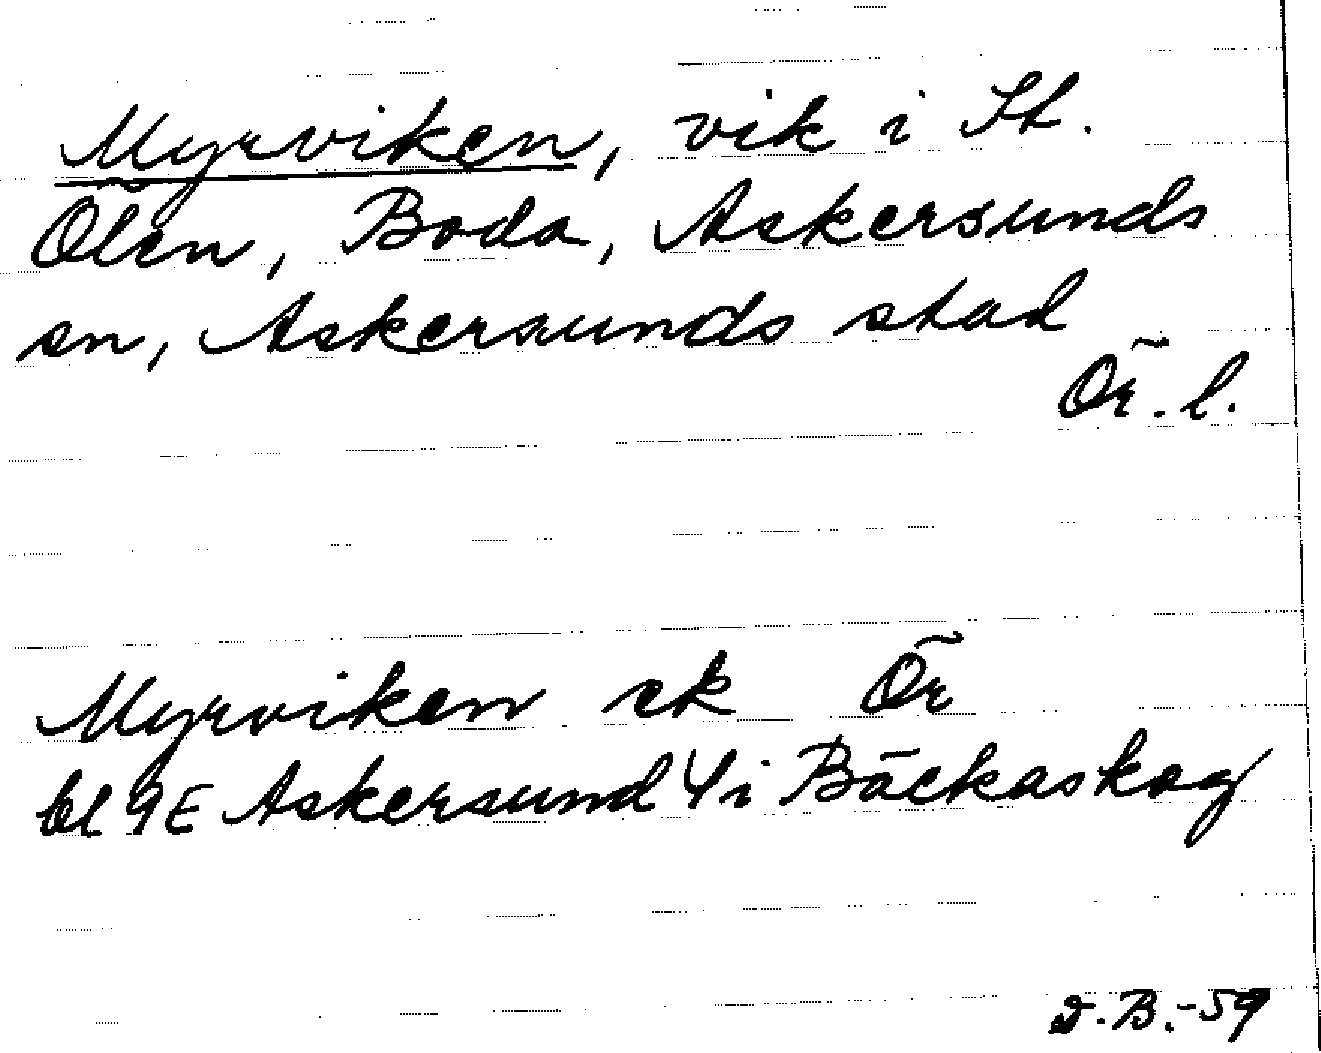 Myrviken, vik i St.
Ölen, Boda, Askersunds
sn, Askersunds stad
Ör. l.
Myrviken ek Ör
bl 9E Askersund 4i Bäckaskog
D.B.-59